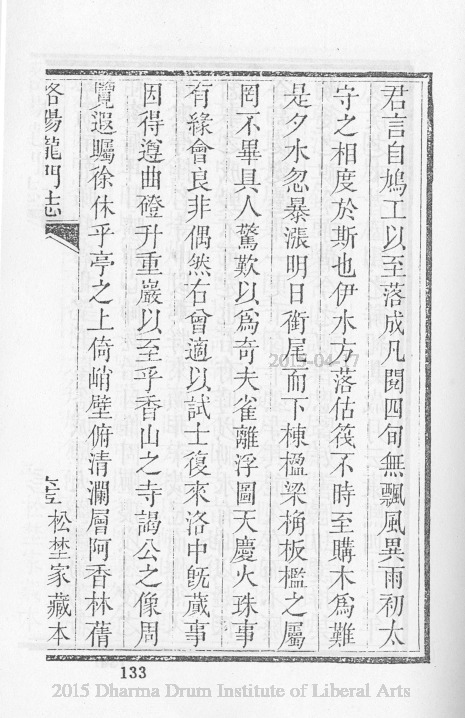 君言自鳩工以至落成凡閱四旬無飄風異雨初太
守之相度於斯也伊水方落估筏不時至購木爲難
是夕水忽暴漲明日銜尾而下棟楹梁桷板檻之屬
罔不畢具人驚歎以爲奇夫雀離浮圖天慶火珠事
有緣會良非偶然右曾適以試士復來洛中旣蕆事
因得遵曲磴升重巖以至乎香山之寺謁公之像周
覽遐矚徐休乎亭之上倚峭壁俯清瀾層阿香林蒨
洛陽龍門志
松埜家藏本
133
2015-04-17
2015 Dharma Drum Institute of Liberal Arts